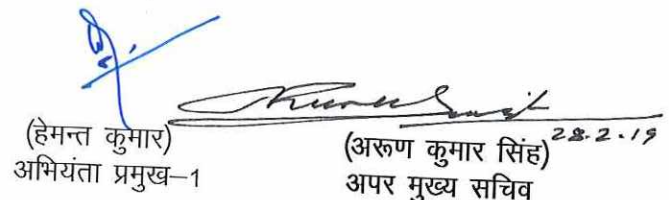 (हेमन्त कुमार)
अभियंता प्रमुख–1
(अरूण कुमार सिंह) 28.2.19
अपर मुख्य सचिव